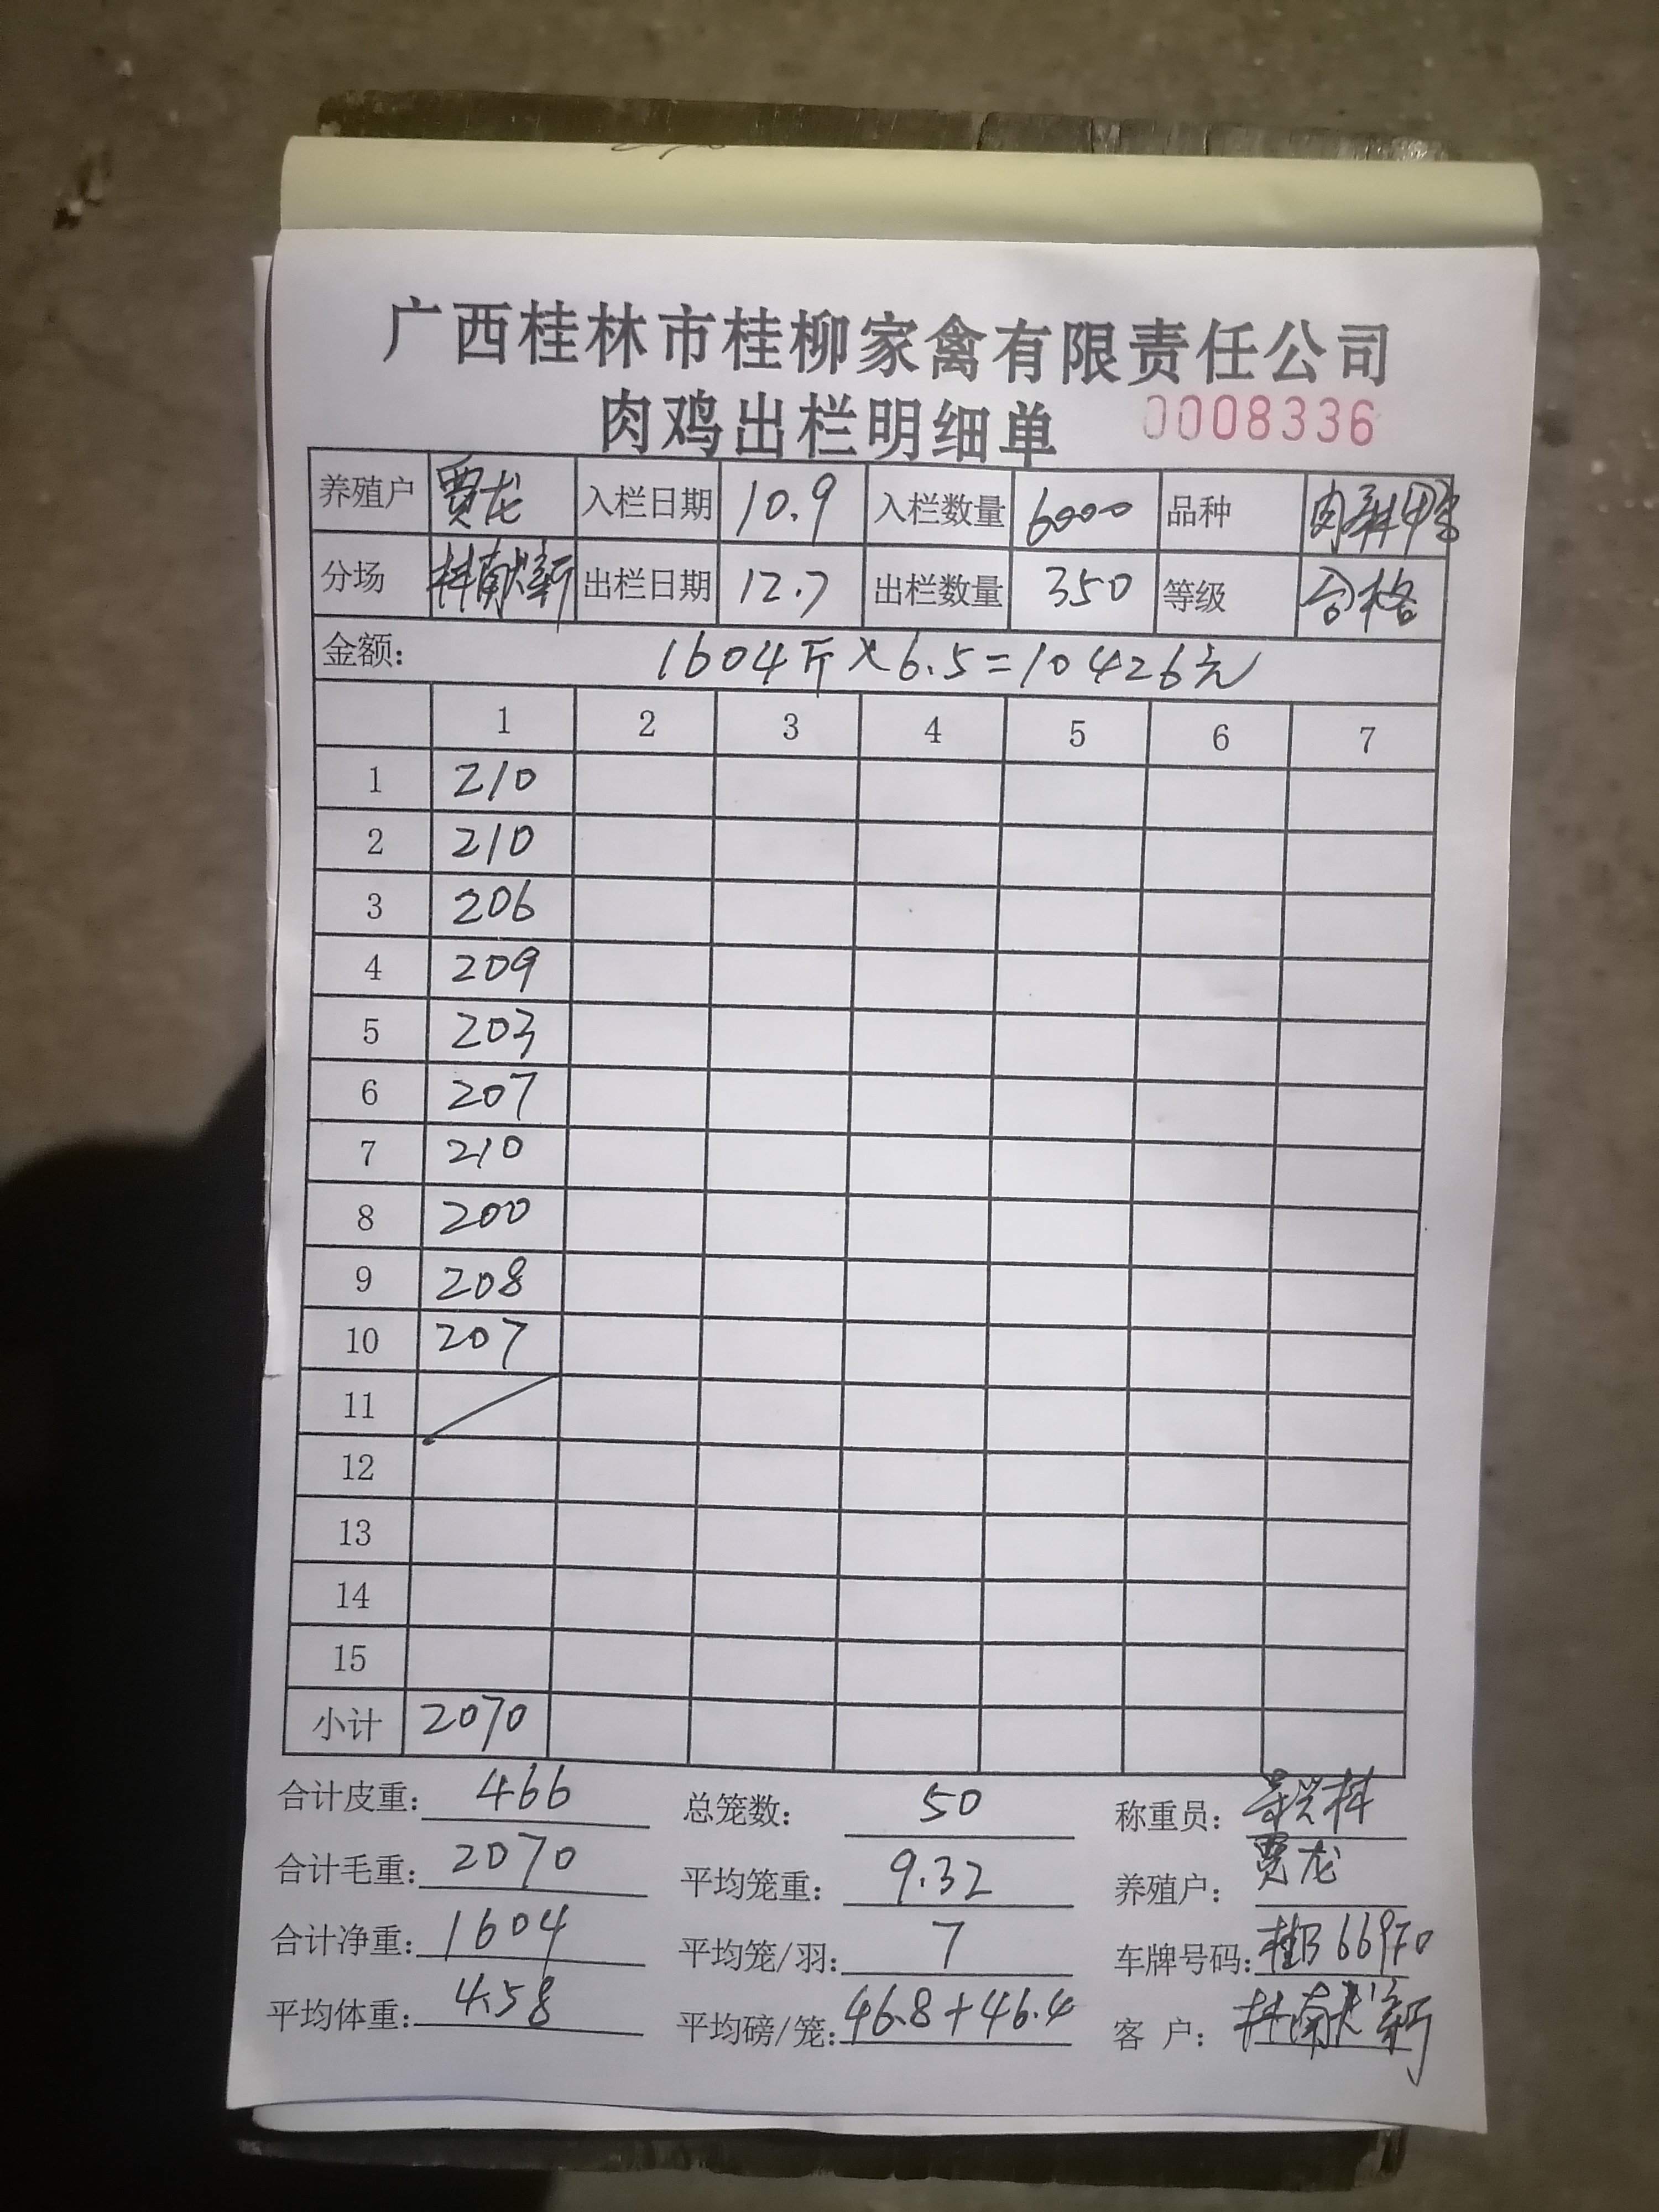 广西桂林市桂柳家禽有限责任公司
肉鸡出栏明细单 0008336
养殖户 贾龙 入栏日期 10.9 入栏数量 6000 品种
分场 林献新 出栏日期 12.7 出栏数量 350 等级 合格
金额: 1604斤×6.5=10426元
1 2 3 4 5 6 7
1 210
2 210
3 206
4 209
5 203
6 207
7 210
8 200
9 208
10 207
11
12
13
14
15
小计 2070
合计皮重: 466 总笼数: 50 称重员:
合计毛重: 2070 平均笼重: 9.32 养殖户: 贾龙
合计净重: 1604 平均笼/羽: 7 车牌号码:
平均体重: 4.58 平均磅/笼: 46.8+46.4 客 户: 林献新